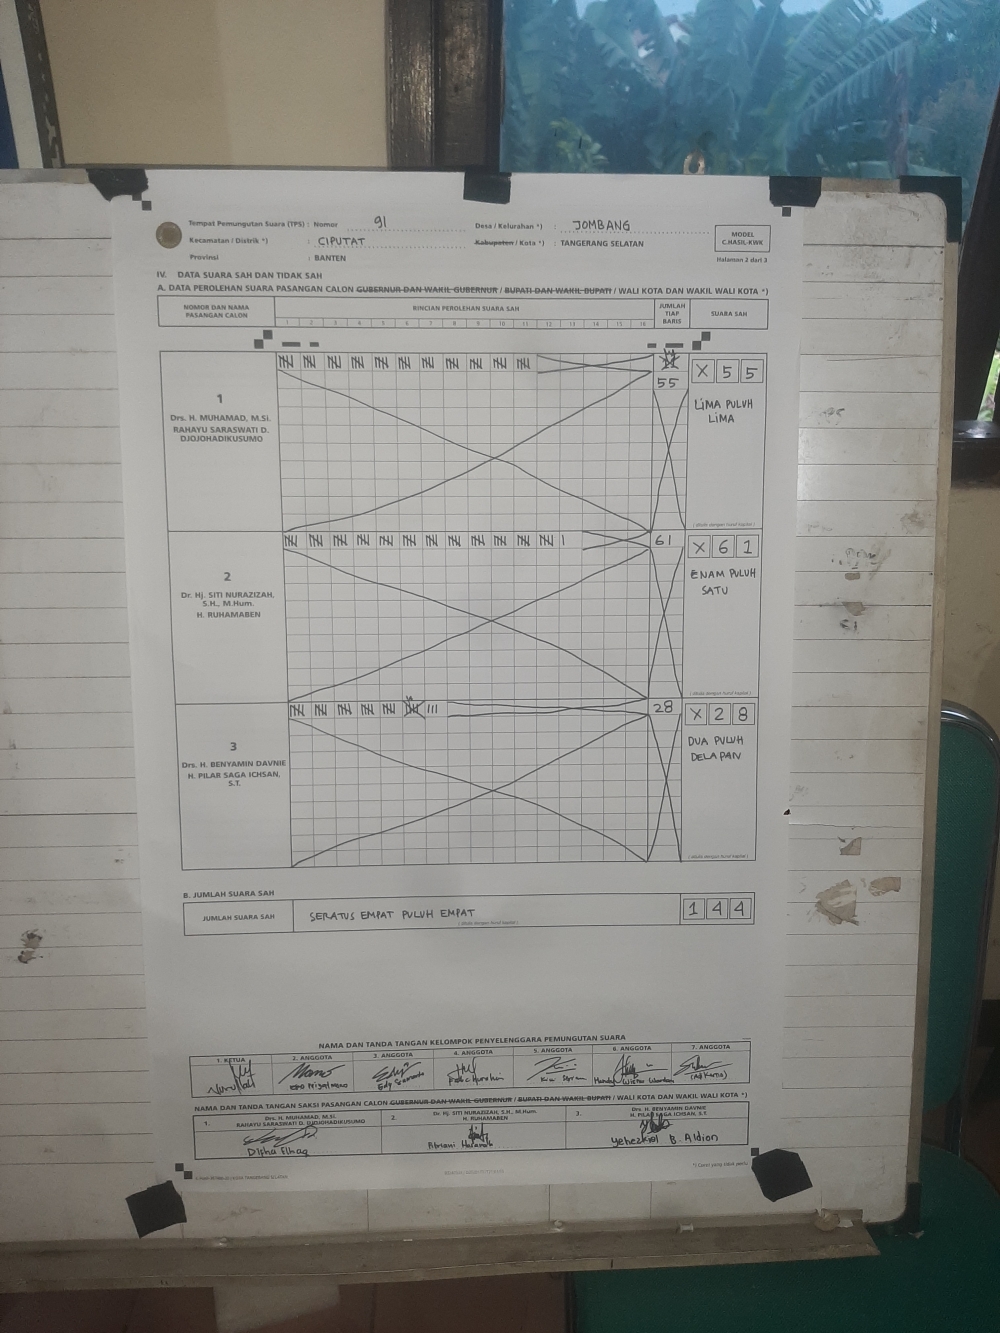 Tempat Pemungutan Suara (TPS) : Nomor 91 Desa / Kelurahan *) : JOMBANG
Kecamatan / Distrik *) : CIPUTAT Kabupaten / Kota *) : TANGERANG SELATAN
Provinsi : BANTEN
MODEL
C.HASIL-KWK
Halaman 2 dari 3
IV. DATA SUARA SAH DAN TIDAK SAH
A. DATA PEROLEHAN SUARA PASANGAN CALON GUBERNUR DAN WAKIL GUBERNUR / BUPATI DAN WAKIL BUPATI / WALI KOTA DAN WAKIL WALI KOTA *)
NOMOR DAN NAMA
PASANGAN CALON
RINCIAN PEROLEHAN SUARA SAH
1 2 3 4 5 6 7 8 9 10 11 12 13 14 15 16
JUMLAH
TIAP
BARIS
SUARA SAH
1
Drs. H. MUHAMAD, M.Si.
RAHAYU SARASWATI D.
DJOJOHADIKUSUMO
55
X 5 5
LIMA PULUH
LIMA
( ditulis dengan huruf kapital )
2
Dr. Hj. SITI NURAZIZAH,
S.H., M.Hum.
H. RUHAMABEN
61
X 6 1
ENAM PULUH
SATU
( ditulis dengan huruf kapital )
3
Drs. H. BENYAMIN DAVNIE
H. PILAR SAGA ICHSAN,
S.T.
28
X 2 8
DUA PULUH
DELAPAN
( ditulis dengan huruf kapital )
B. JUMLAH SUARA SAH
JUMLAH SUARA SAH
SERATUS EMPAT PULUH EMPAT
( ditulis dengan huruf kapital )
1 4 4
NAMA DAN TANDA TANGAN KELOMPOK PENYELENGGARA PEMUNGUTAN SUARA
1. KETUA 2. ANGGOTA 3. ANGGOTA 4. ANGGOTA 5. ANGGOTA 6. ANGGOTA 7. ANGGOTA
NAMA DAN TANDA TANGAN SAKSI PASANGAN CALON GUBERNUR DAN WAKIL GUBERNUR / BUPATI DAN WAKIL BUPATI / WALI KOTA DAN WAKIL WALI KOTA *)
1. Drs. H. MUHAMAD, M.Si.
RAHAYU SARASWATI D. DJOJOHADIKUSUMO
2. Dr. Hj. SITI NURAZIZAH, S.H., M.Hum.
H. RUHAMABEN
3. Drs. H. BENYAMIN DAVNIE
H. PILAR SAGA ICHSAN, S.T.
Yehezkiel B. Aldion
*) Coret yang tidak perlu